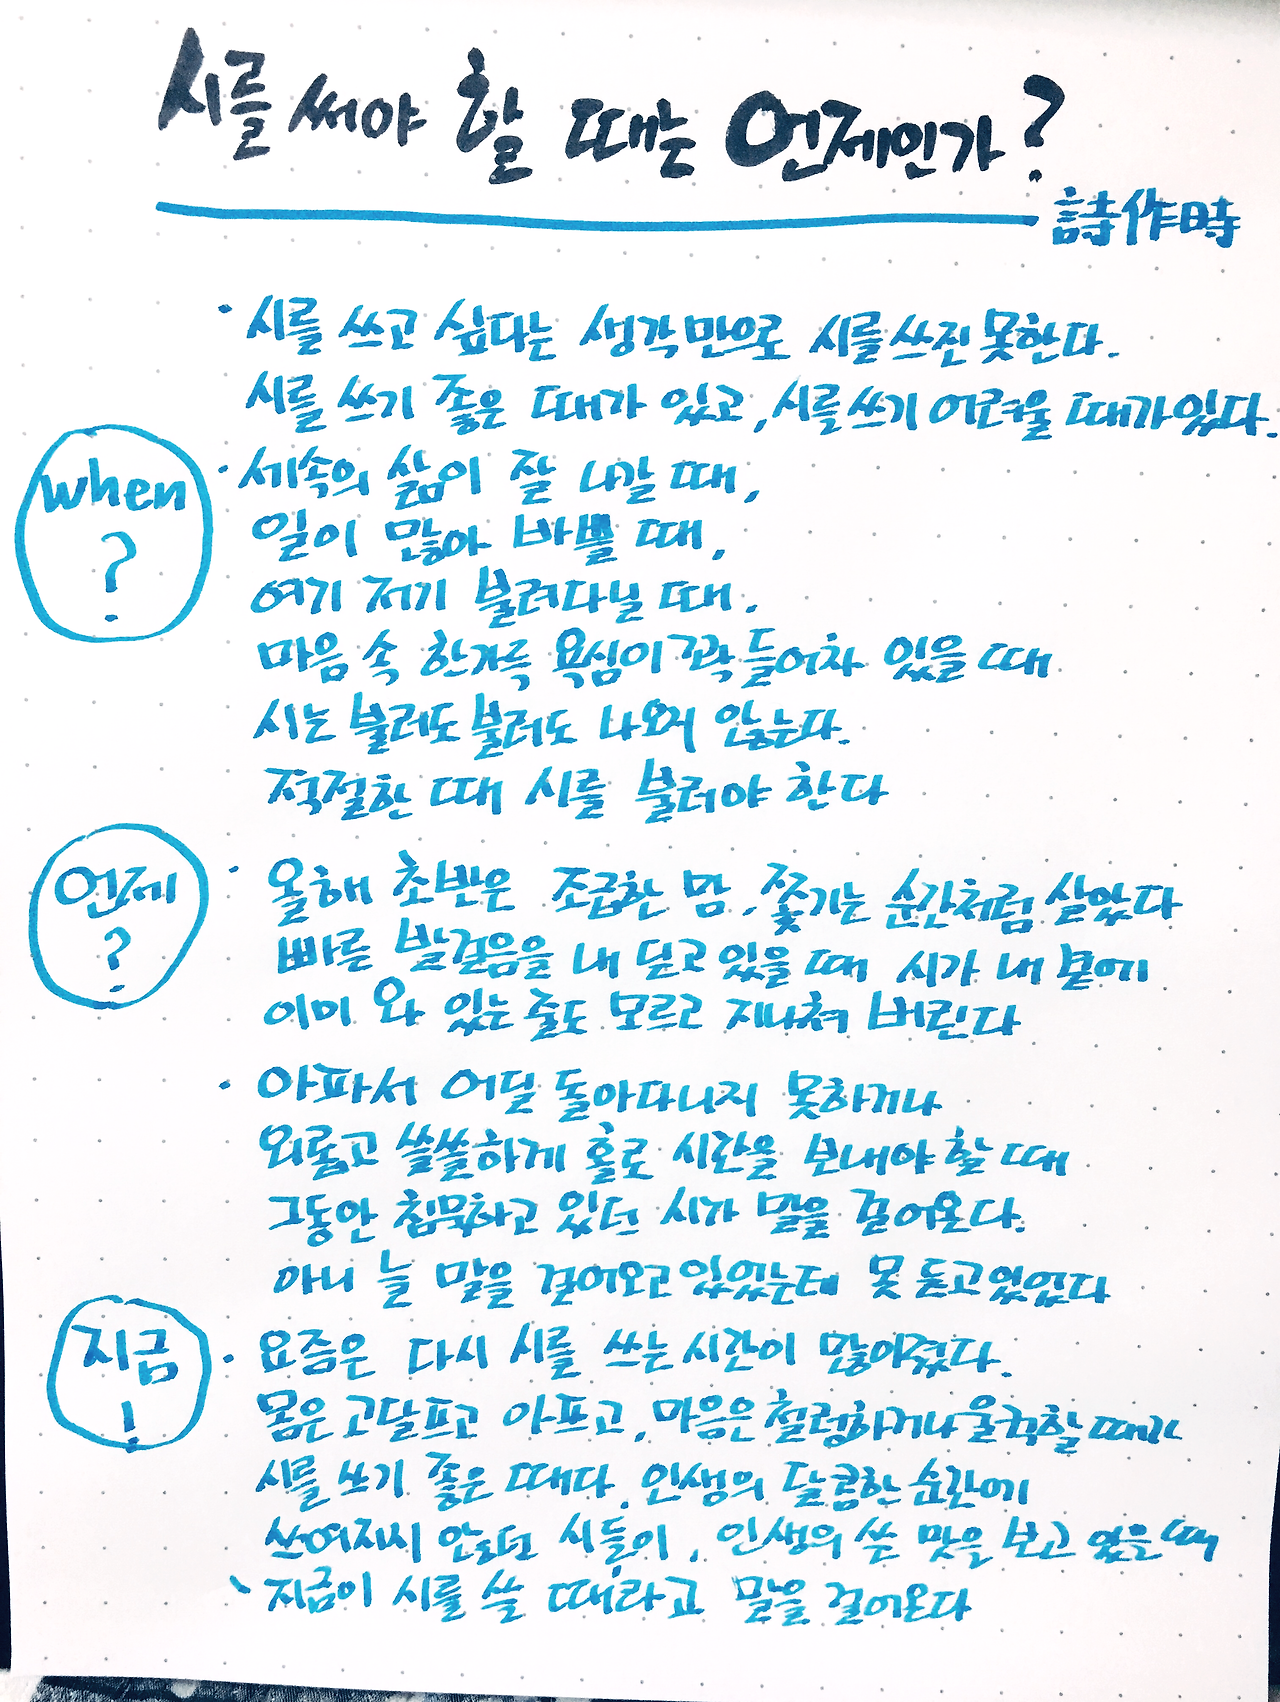 시를 써야 할 때는 언제인가?
詩作時
· 시를 쓰고 싶다는 생각만으로 시를 쓰진 못한다.
시를 쓰기 좋은 때가 있고, 시를 쓰기 어려울 때가 있다.
when
?
· 세속의 삶이 잘 나갈 때,
일이 많아 바쁠 때,
여기 저기 불려다닐 때.
마음 속 한가득 욕심이 꽉 들어차 있을 때
시는 불러도 불러도 나오지 않는다.
적절한 때 시를 불러야 한다
언제
?
· 올해 초반은 조급한 맘, 쫓기는 순간처럼 살았다
빠른 발걸음을 내 딛고 있을 때 시가 내 곁에
이미 와 있는 줄도 모르고 지나쳐 버린다
· 아파서 어딜 돌아다니지 못하거나
외롭고 쓸쓸하게 홀로 시간을 보내야 할 때
그동안 침묵하고 있던 시가 말을 걸어온다.
아니 늘 말을 걸어오고 있었는데 못 듣고 있었다
지금
!
· 요즘은 다시 시를 쓰는 시간이 많아졌다.
몸은 고달프고 아프고, 마음은 철렁하거나 울컥할 때가
시를 쓰기 좋은 때다. 인생의 달콤한 순간에
쓰여지지 않던 시들이, 인생의 쓴 맛을 보고 있을 때
지금이 시를 쓸 때라고 말을 걸어온다